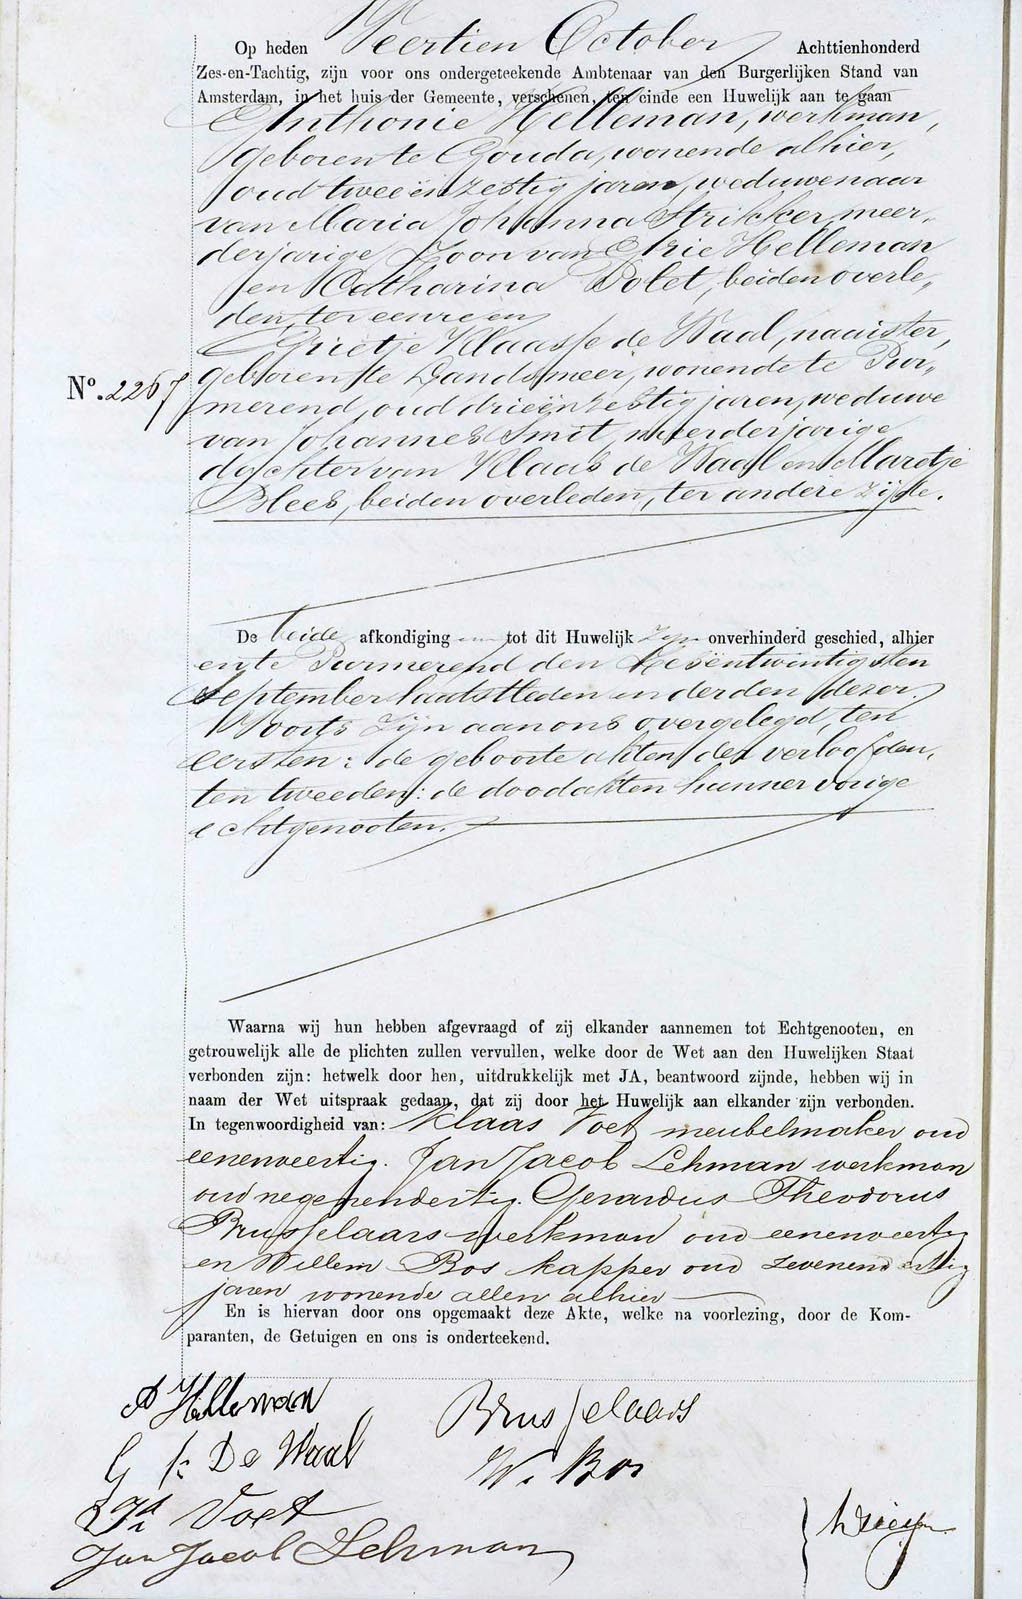 Op heden Veertien October Achttienhonderd
Zes-en-Tachtig, zijn voor ons ondergeteekende Ambtenaar van den Burgerlijken Stand van
Amsterdam, in het huis der Gemeente, verschenen, ten einde een Huwelijk aan te gaan
Anthonie Helleman, werkman,
geboren te Gouda, wonende alhier,
oud tweeënzestig jaren, weduwenaar
van Maria Johanna Strikker, meer„
derjarige Zoon van Arie Helleman
en Catharina Polet, beiden overle„
den, ter eenre en
Grietje Klaasse de Waal, naaister,
No. 2267 geboren te Landsmeer, wonende te Pur„
merend, oud drieënzestig jaren, weduwe
van Johannes Smit, meerderjarige
dochter van Klaas de Waal en Maretje
Blees, beiden overleden, ter andere zijde.
De beide afkondiging en tot dit Huwelijk zijn onverhinderd geschied, alhier
en te Purmerend den Zesëntwintigsten
September laatstleden en derden dezer.
Voorts zijn aan ons overgelegd, ten
eersten: de geboorte akten der verloofden,
ten tweeden: de doodakten hunner vorige
echtgenooten.
Waarna wij hun hebben afgevraagd of zij elkander aannemen tot Echtgenooten, en
getrouwelijk alle de plichten zullen vervullen, welke door de Wet aan den Huwelijken Staat
verbonden zijn: hetwelk door hen, uitdrukkelijk met JA, beantwoord zijnde, hebben wij in
naam der Wet uitspraak gedaan, dat zij door het Huwelijk aan elkander zijn verbonden.
In tegenwoordigheid van: Klaas Voet meubelmaker oud
eenenveertig. Jan Jacob Lehman werkman
oud negenendertig. Gerardus Theodorus
Brusselaars werkman oud eenenveertig
en Willem Bos kapper oud zevenendertig
jaren wonende allen alhier
En is hiervan door ons opgemaakt deze Akte, welke na voorlezing, door de Kom-
paranten, de Getuigen en ons is onderteekend.
A Helleman
Brusselaars
G k De Waal
W. Bos
Voet
Jan Jacob Lehman